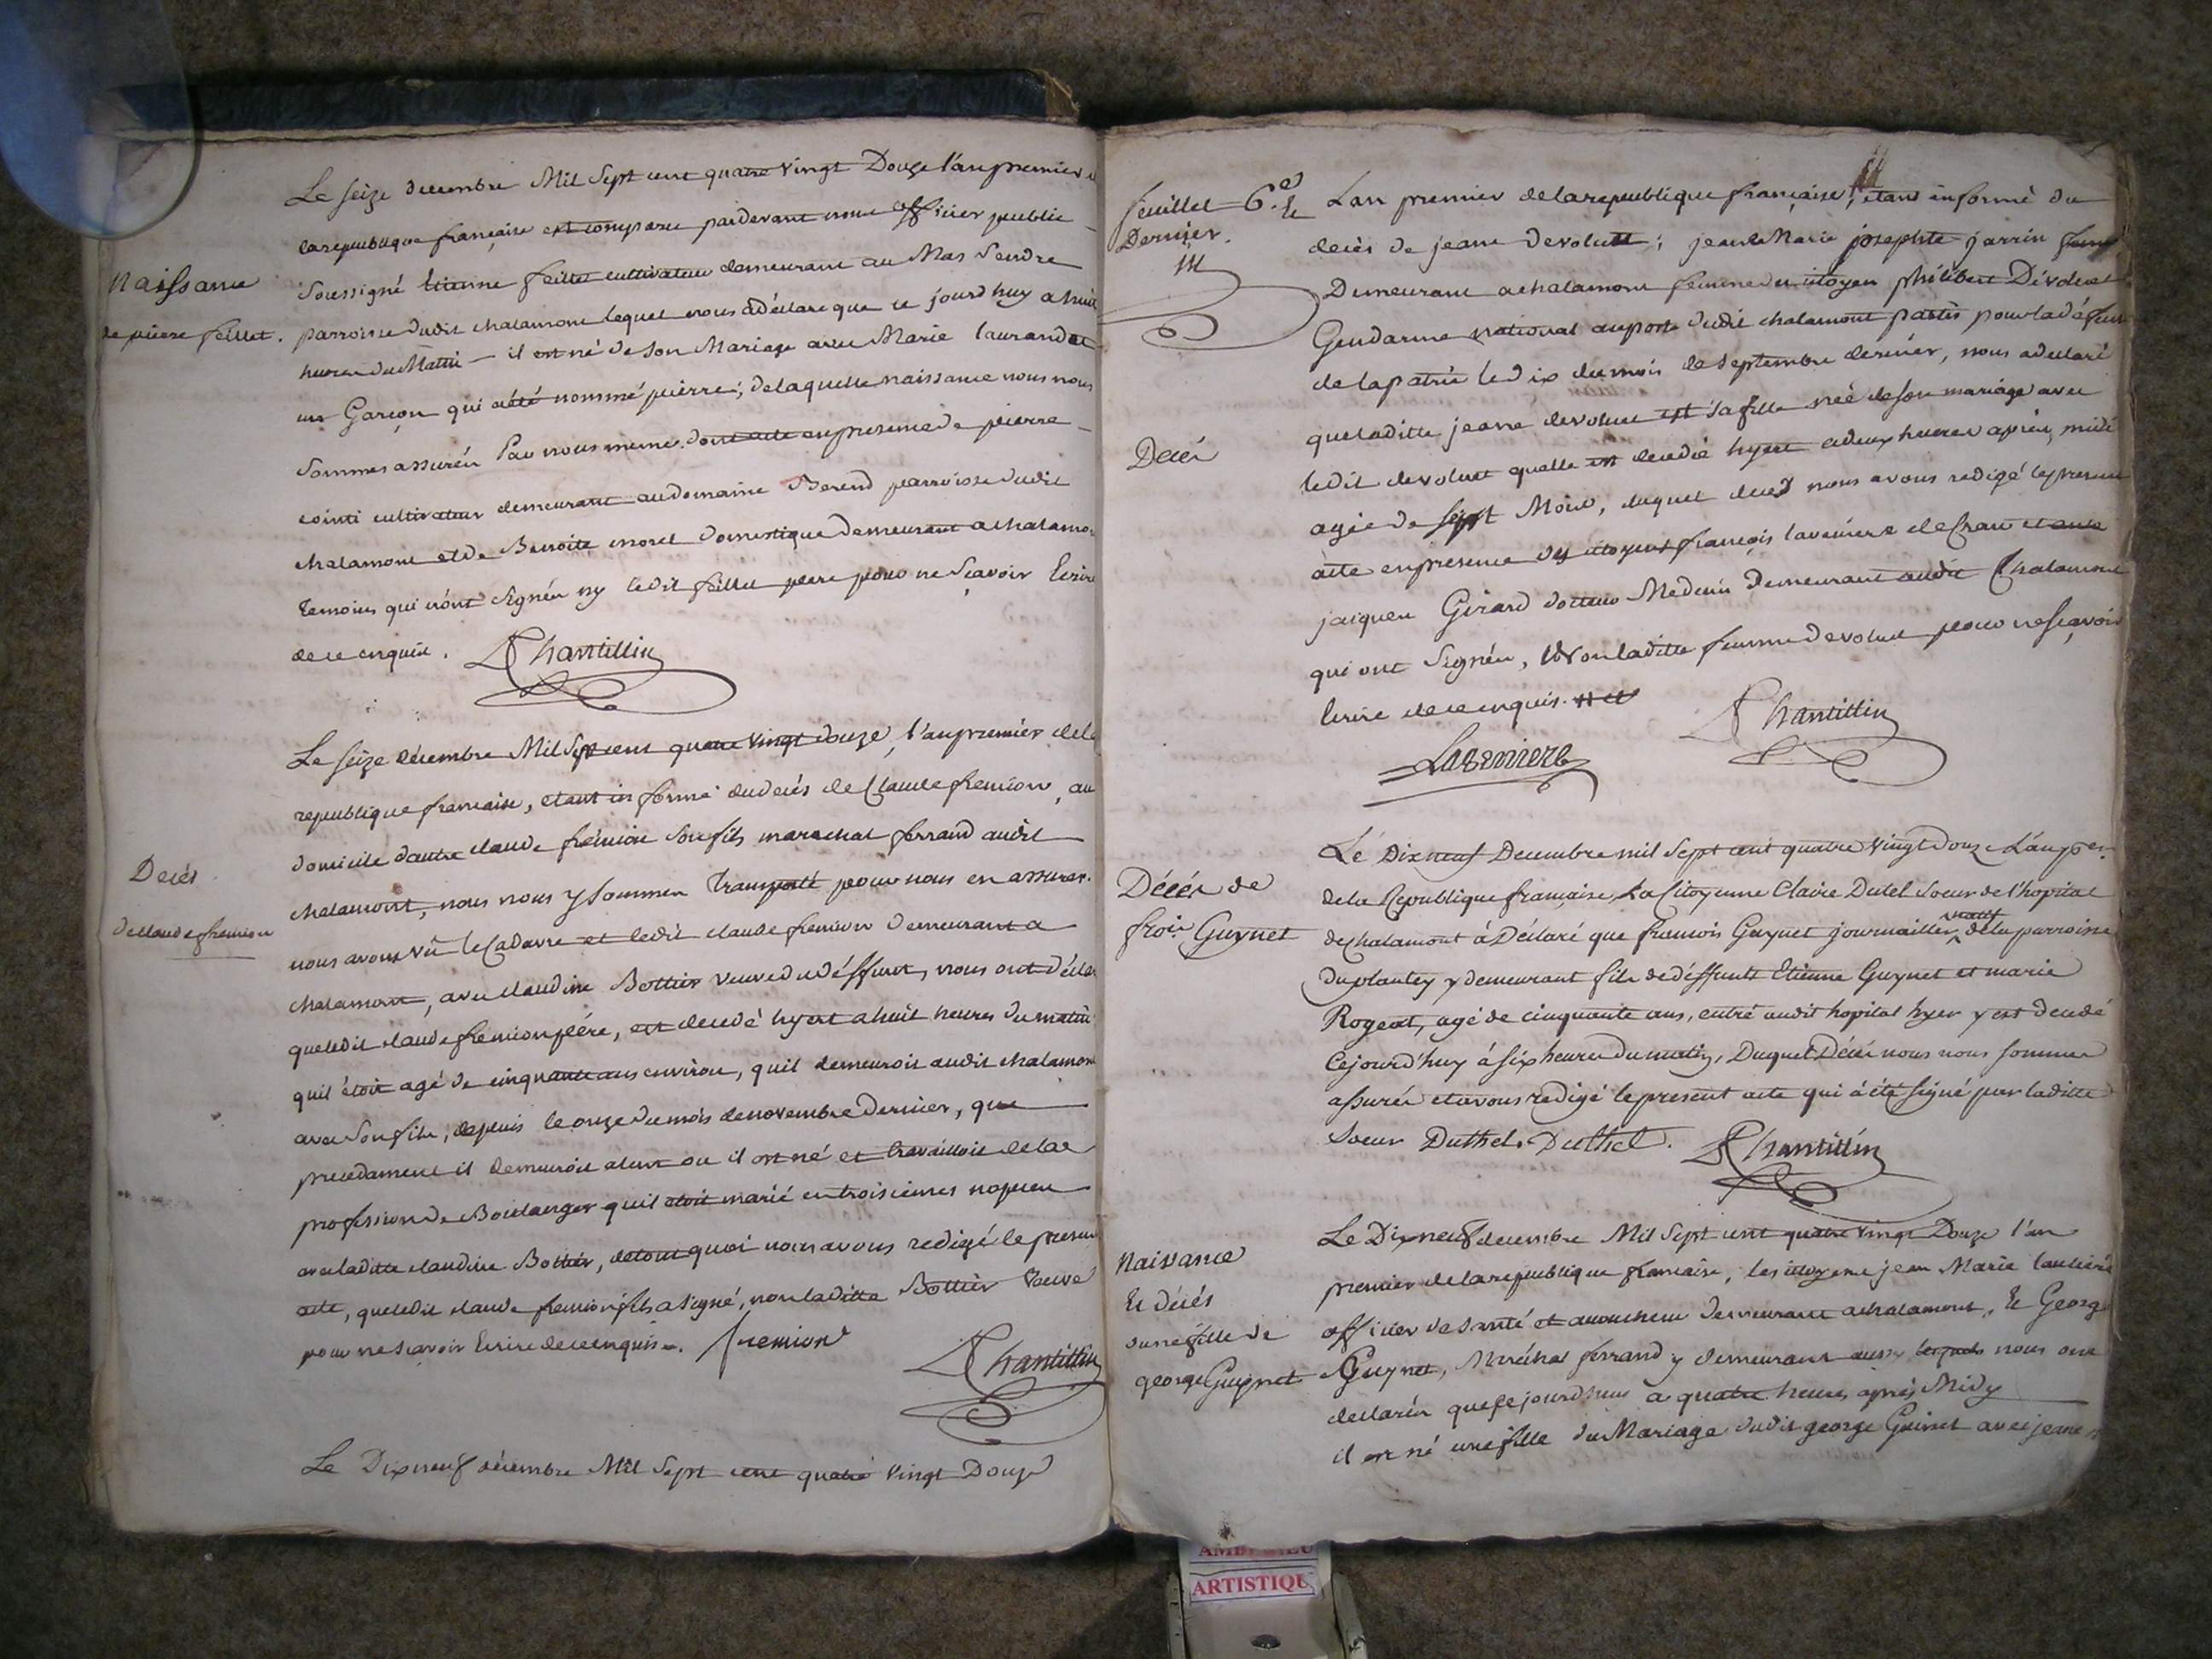 Naissance
de pierre feillet.
Le seize decembre Mil Sept cent quatre vingt Douze l'an premier
la republique française est comparu pardevant nous officier public
soussigné Etienne feillet cultivateur demeurant au Mas Sendre
parroisse dudit chalamont lequel nous a déclaré que ce jourd'huy a huit
heures du Matin il est né de son Mariage avec Marie laurandat
un Garçon qui a été nommé pierre; de laquelle naissance nous nous
sommes assurés Par nous meme. dont acte en presence de pierre
cointi cultivateur demeurant au domaine Berend parroisse dudit
chalamont et de Benoite morel Domestique demeurant a chalamon
temoins qui n'ont signés ny ledit feillet pere pour ne sçavoir Ecrire
de ce enquis. Chantillin
Décès
de Claude fremion
Le seize décembre Mil Sept cent quatre vingt douze, l'an premier de la
republique francaise, etant informé du decés de Claude fremion, au
domicile d'autre claude fremion son fils marechal ferrand audit
chalamont, nous nous y sommes Transporté pour nous en assurer.
nous avons vû le Cadavre et ledit claude fremion demeurant a
chalamont, avec claudine Bottier veuve du déffunt, nous ont décla
que ledit claude fremion pére, est decedé hyert a huit heures du matin
quil étoit agé de cinquante ans environ, quil demeuroit audit chalamont
avec son fils, depuis le onze du mois de novembre dernier, que
precedament il demeuroit a ou il est né et travailloit de la
profession de Boulanger quil etoit marié en troisiemes nopces
avec laditte claudine Bottier, de tout quoi nous avons redigé le present
acte, que ledit claude fremion fils a signé, non laditte Bottier veuve
pour ne scavoir Ecrire de ce enquis. fremion
Chantillin
Le Dix neuf décembre Mil Sept cent quatre vingt Douze
feuillet 6.e et
Dernier.
Décés
L'an premier de la republique française, etant informé du
decès de jeane devoluet; jeanne Marie josephte jarrin
Demeurant a chalamont femme du citoyen philibert Dévoluet
Gendarme national au poste dudit chalamont partis pour la défense
de la patrie le dix du mois de septembre dernier, nous a declaré
que laditte jeanne devoluet est sa fille née de son mariage avec
ledit devoluet quelle est decedée hyert a deux heures aprés midi
agée de sept Mois, duquel decès nous avons redigé le present
acte en presence des citoyens françois laverniere de Cran et
jacques Girard docteur Medecin Demeurant audit Chalamont
qui ont signés, Non laditte femme devoluet pour ne sçavoir
Ecrire de ce enquis.
Chantillin
Laverniere
Décés de
frois Guynet
Le Dix neuf Decembre mil Sept cent quatre vingt Douze L'an per.
de la Republique française, La Citoyenne Claire Dutel Soeur de l'hopital
de chalamont à Déclaré que francois Guynet journaillier natif de la parroisse
du plantey y demeurant fils de déffunts Etienne Guynet et marie
Rogeat, agé de cinquante ans, entré audit hopital hyer y est decedé
Cejourd'huy à six heures du matin, Duquel Décés nous nous sommes
assurés et avons redigé le present acte qui à été signé par laditte
Soeur Duthel. Duthel. Chantillin
Naissance
Et décés
d'une fille de
george Guynet
Le Dix neuf decembre Mil Sept cent quatre vingt Douze l'an
premier de la republique francaise, les citoyens jean Marie
officier de santé et accoucheur demeurant a chalamont, Et George
Guynet, Maréchal ferrand y demeurant aussy lesquels nous ont
declarés que ce jourd'huy a quatre heures aprés Midy
il est né une fille du Mariage dudit george Guinet avec jeane
AMBERIEU
ARTISTIQU